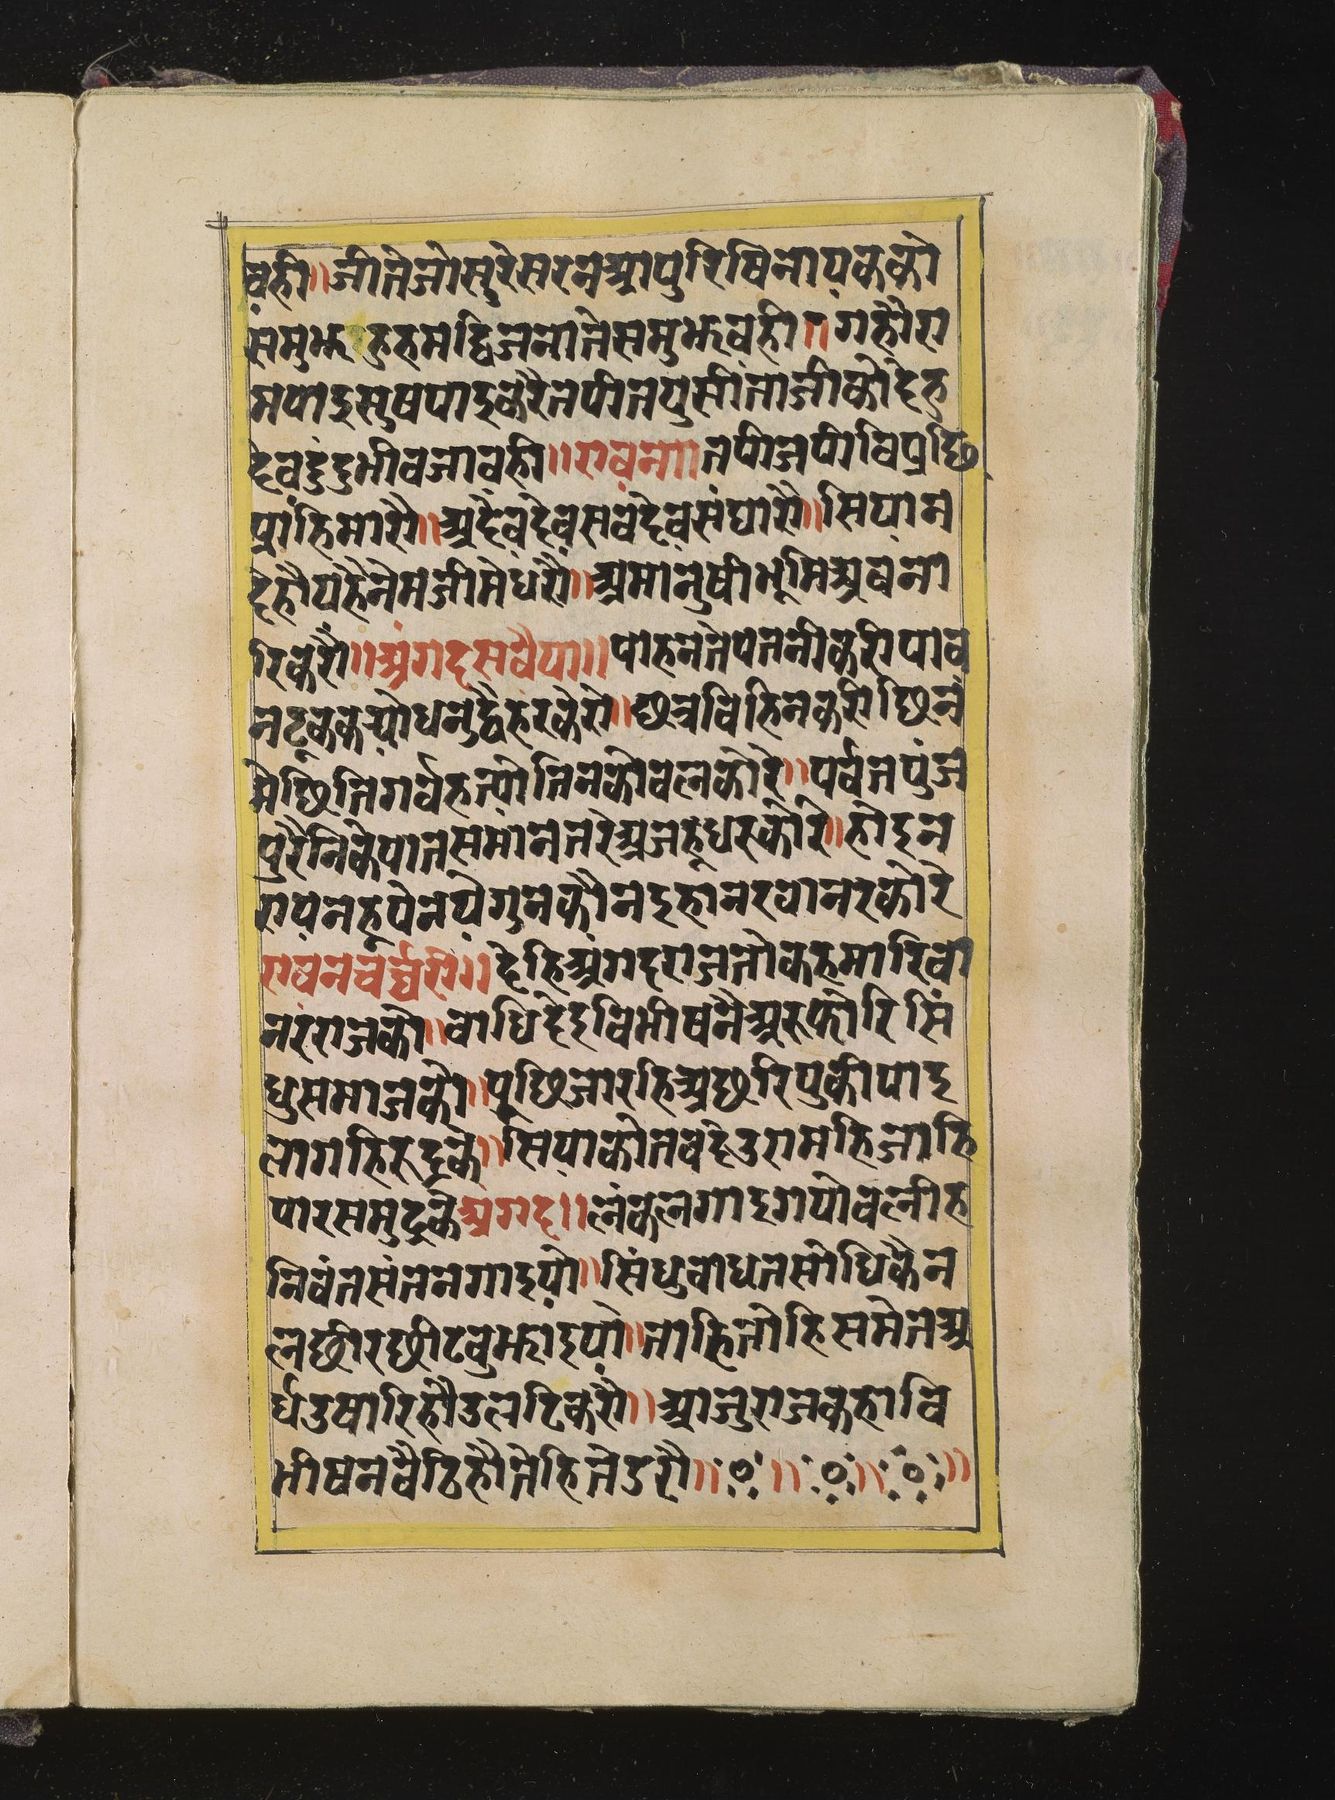 वही॥जीतेजोसुरेसरनआपुरिषिनायककौ
संमुझहुहमद्विजनातेसमुझवही॥गहौरा
मपाइसुषपाइकरैतपीतपुसीताजीकोदेहु
देवदुंदुभीवजावही॥रावना॥तपीजपीविप्रछि
प्रांहिमारौ॥अदेवदेवसवदेवसंघारौ॥सियान
देहौयहैनेमजीमेधरौ॥अमानुषीभूमिअवना
रिकरौं॥अंगदसवैया॥पाहनतेपतनीकरीपाव
नटूककयोधनुद्वैहरकेरो॥छत्रविहिनकरीछिन
मेछितिगर्वहत्योतिनकोवलकोरे॥पर्वतपुंज
पुरैनिकेपातसमानतरेअजहूधरकोरे॥होइन
रायनहूपेनयेगुनकौनइहानरवानरकोरे
रावनचर्चरी॥देहिअंगदराजतोकहमारिवा
नरराजकौ॥वाधिदेइविभीषनैअरुफोरिसिं
धुसमाजकौ॥पूछिजारहिअछरिपुकीपाइ
लागहिरुद्रके॥सियाकोतवदेउरामहिजाहि
पारसमुद्रके॥अंगद॥लंकलगाइगयोवलीह
निवंतसंतनगाइयो॥सिंधुवाधतसोधिकैन
लछीरछीटवुझाइयो॥ताहितोहिसमेतअं
र्धउषारिहौउलटिकरौं॥आजुराजकहावि
भीषनवैठिहौतेहितेडरौ॥॥॥॥